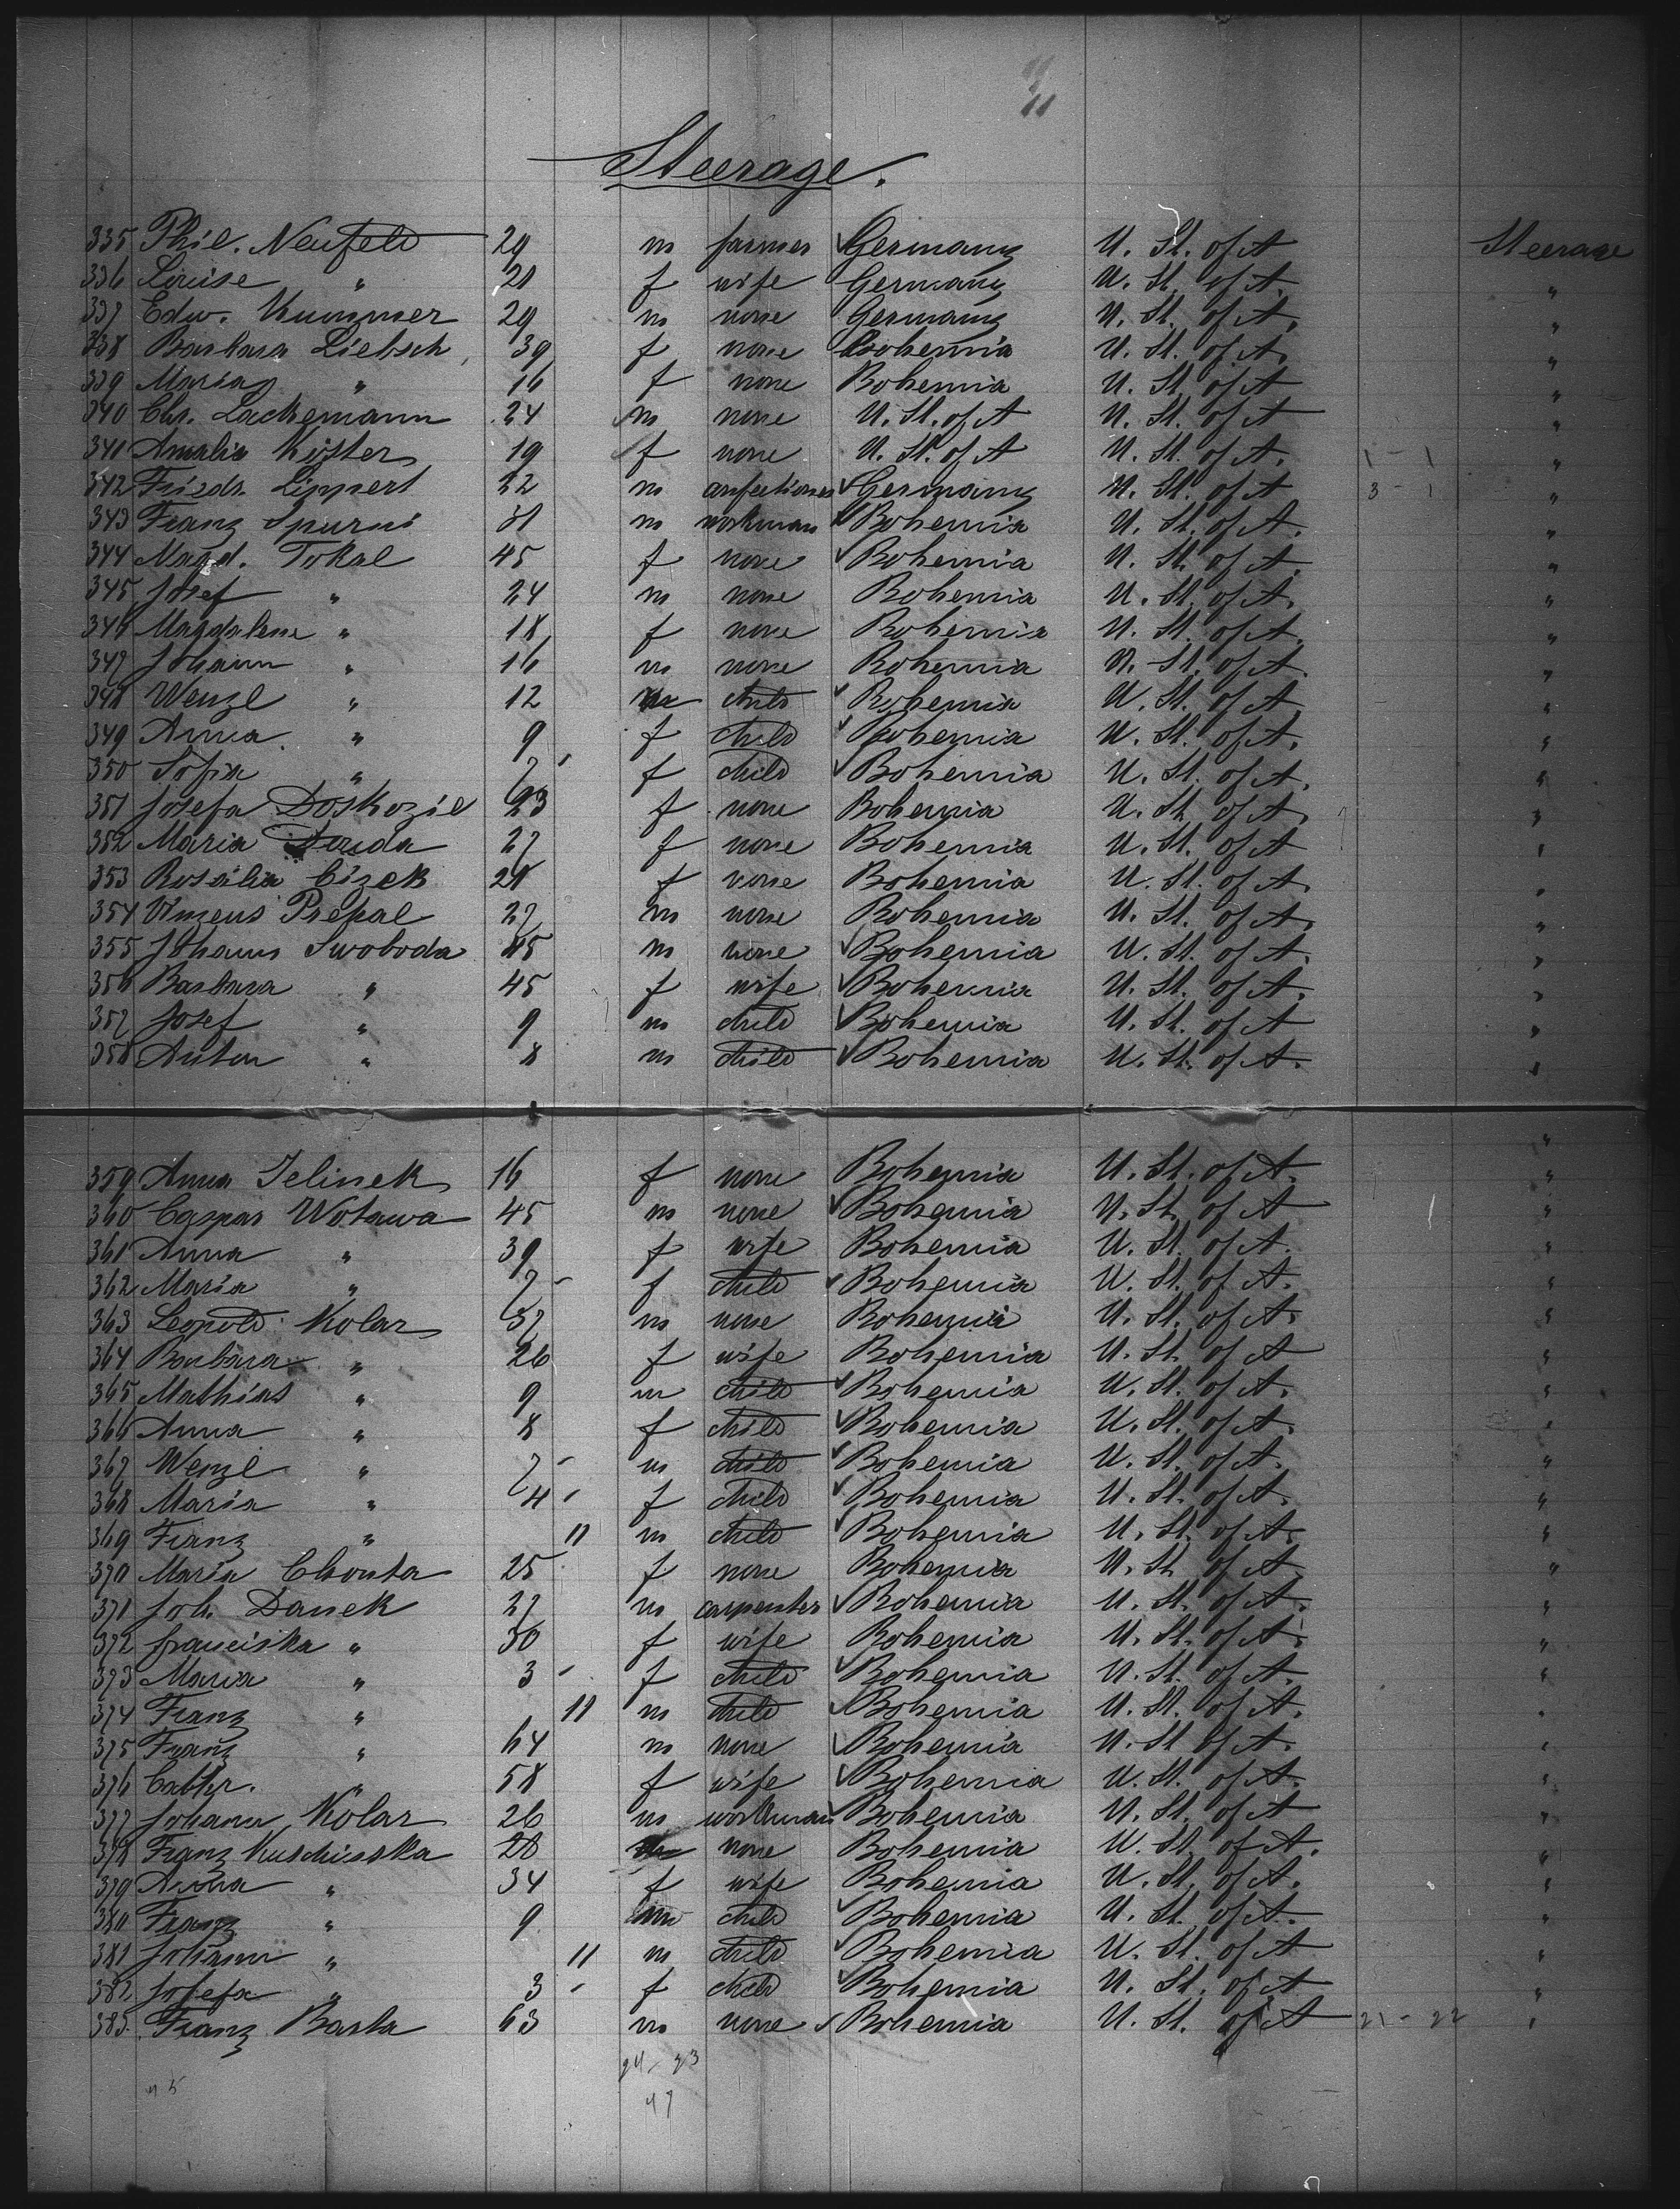 Steerage.
335 Phil. Neufeld 29 m farmer Germany U. St. of A Steerage
336 Louise " 21 f wife Germany U. St. of A. "
337 Edw. Kummer 29 m none Germany U. St. of A. "
338 Barbara Liebsch 39 f none Bohemia U. St. of A. "
339 Maria " 16 f none Bohemia U. St. of A "
340 Chr. Lackemann 24 m none U. St. of A U. St. of A "
341 Amalia Köster 19 f none U. St. of A U. St. of A. 1 - 1 "
342 Friedr. Lippert 22 m confectioner Germany U. St. of A 3 - 1 "
343 Franz Spurni 31 m workman Bohemia U. St. of A. "
344 Magd. Tokal 45 f none Bohemia U. St. of A. "
345 Josef " 24 m none Bohemia U. St. of A. "
346 Magdalene " 18 f none Bohemia U. St. of A. "
347 Johann " 16 m none Bohemia U. St. of A. "
348 Wenzl " 12 m child Bohemia U. St. of A "
349 Anna " 9 f child Bohemia U. St. of A. "
350 Sofia " 7 f child Bohemia U. St. of A. "
351 Josefa Doskozil 23 f none Bohemia U. St. of A. "
352 Maria 27 f none Bohemia U. St. of A "
353 Rosalia Cizek 28 f none Bohemia U. St. of A. "
354 Vinzens Prepal 27 m none Bohemia U. St. of A. "
355 Johann Swoboda 45 m none Bohemia U. St. of A. "
356 Barbara " 45 f wife Bohemia U. St. of A. "
357 Josef " 9 m child Bohemia U. St. of A "
358 Anton " 8 m child Bohemia U. St. of A. "
359 Anna Jelinek 16 f none Bohemia U. St. of A. "
360 Caspar Wotawa 45 m none Bohemia U. St. of A "
361 Anna " 39 f wife Bohemia U. St. of A. "
362 Maria " 7 - f child Bohemia U. St. of A. "
363 Leopold Kolar 37 m none Bohemia U. St. of A. "
364 Barbara " 26 f wife Bohemia U. St. of A "
365 Mathias " 9 m child Bohemia U. St. of A. "
366 Anna " 8 f child Bohemia U. St. of A. "
367 Wenzl " 7 - m child Bohemia U. St. of A. "
368 Maria " 4 - f child Bohemia U. St. of A. "
369 Franz " 11 m child Bohemia U. St. of A. "
370 Maria Chouta 25 f none Bohemia U. St. of A "
371 Joh. Danek 27 m carpenter Bohemia U. St. of A. "
372 Franciska " 30 f wife Bohemia U. St. of A. "
373 Maria " 3 - f child Bohemia U. St. of A. "
374 Franz " 11 m child Bohemia U. St. of A. "
375 Franz " 64 m none Bohemia U. St. of A. "
376 Cathr. " 58 f wife Bohemia U. St. of A. "
377 Johann Kolar 26 m workman Bohemia U. St. of A "
378 Franz Kuschisska 28 m none Bohemia U. St. of A. "
379 Anna " 34 f wife Bohemia U. St. of A. "
380 Franz " 9 m child Bohemia U. St. of A. "
381 Johann " 11 m child Bohemia U. St. of A "
382 Josefa " 3 - f child Bohemia U. St. of A "
383 Franz Basta 63 m none Bohemia U. St. of A 21 - 22 "
24 - 23
47